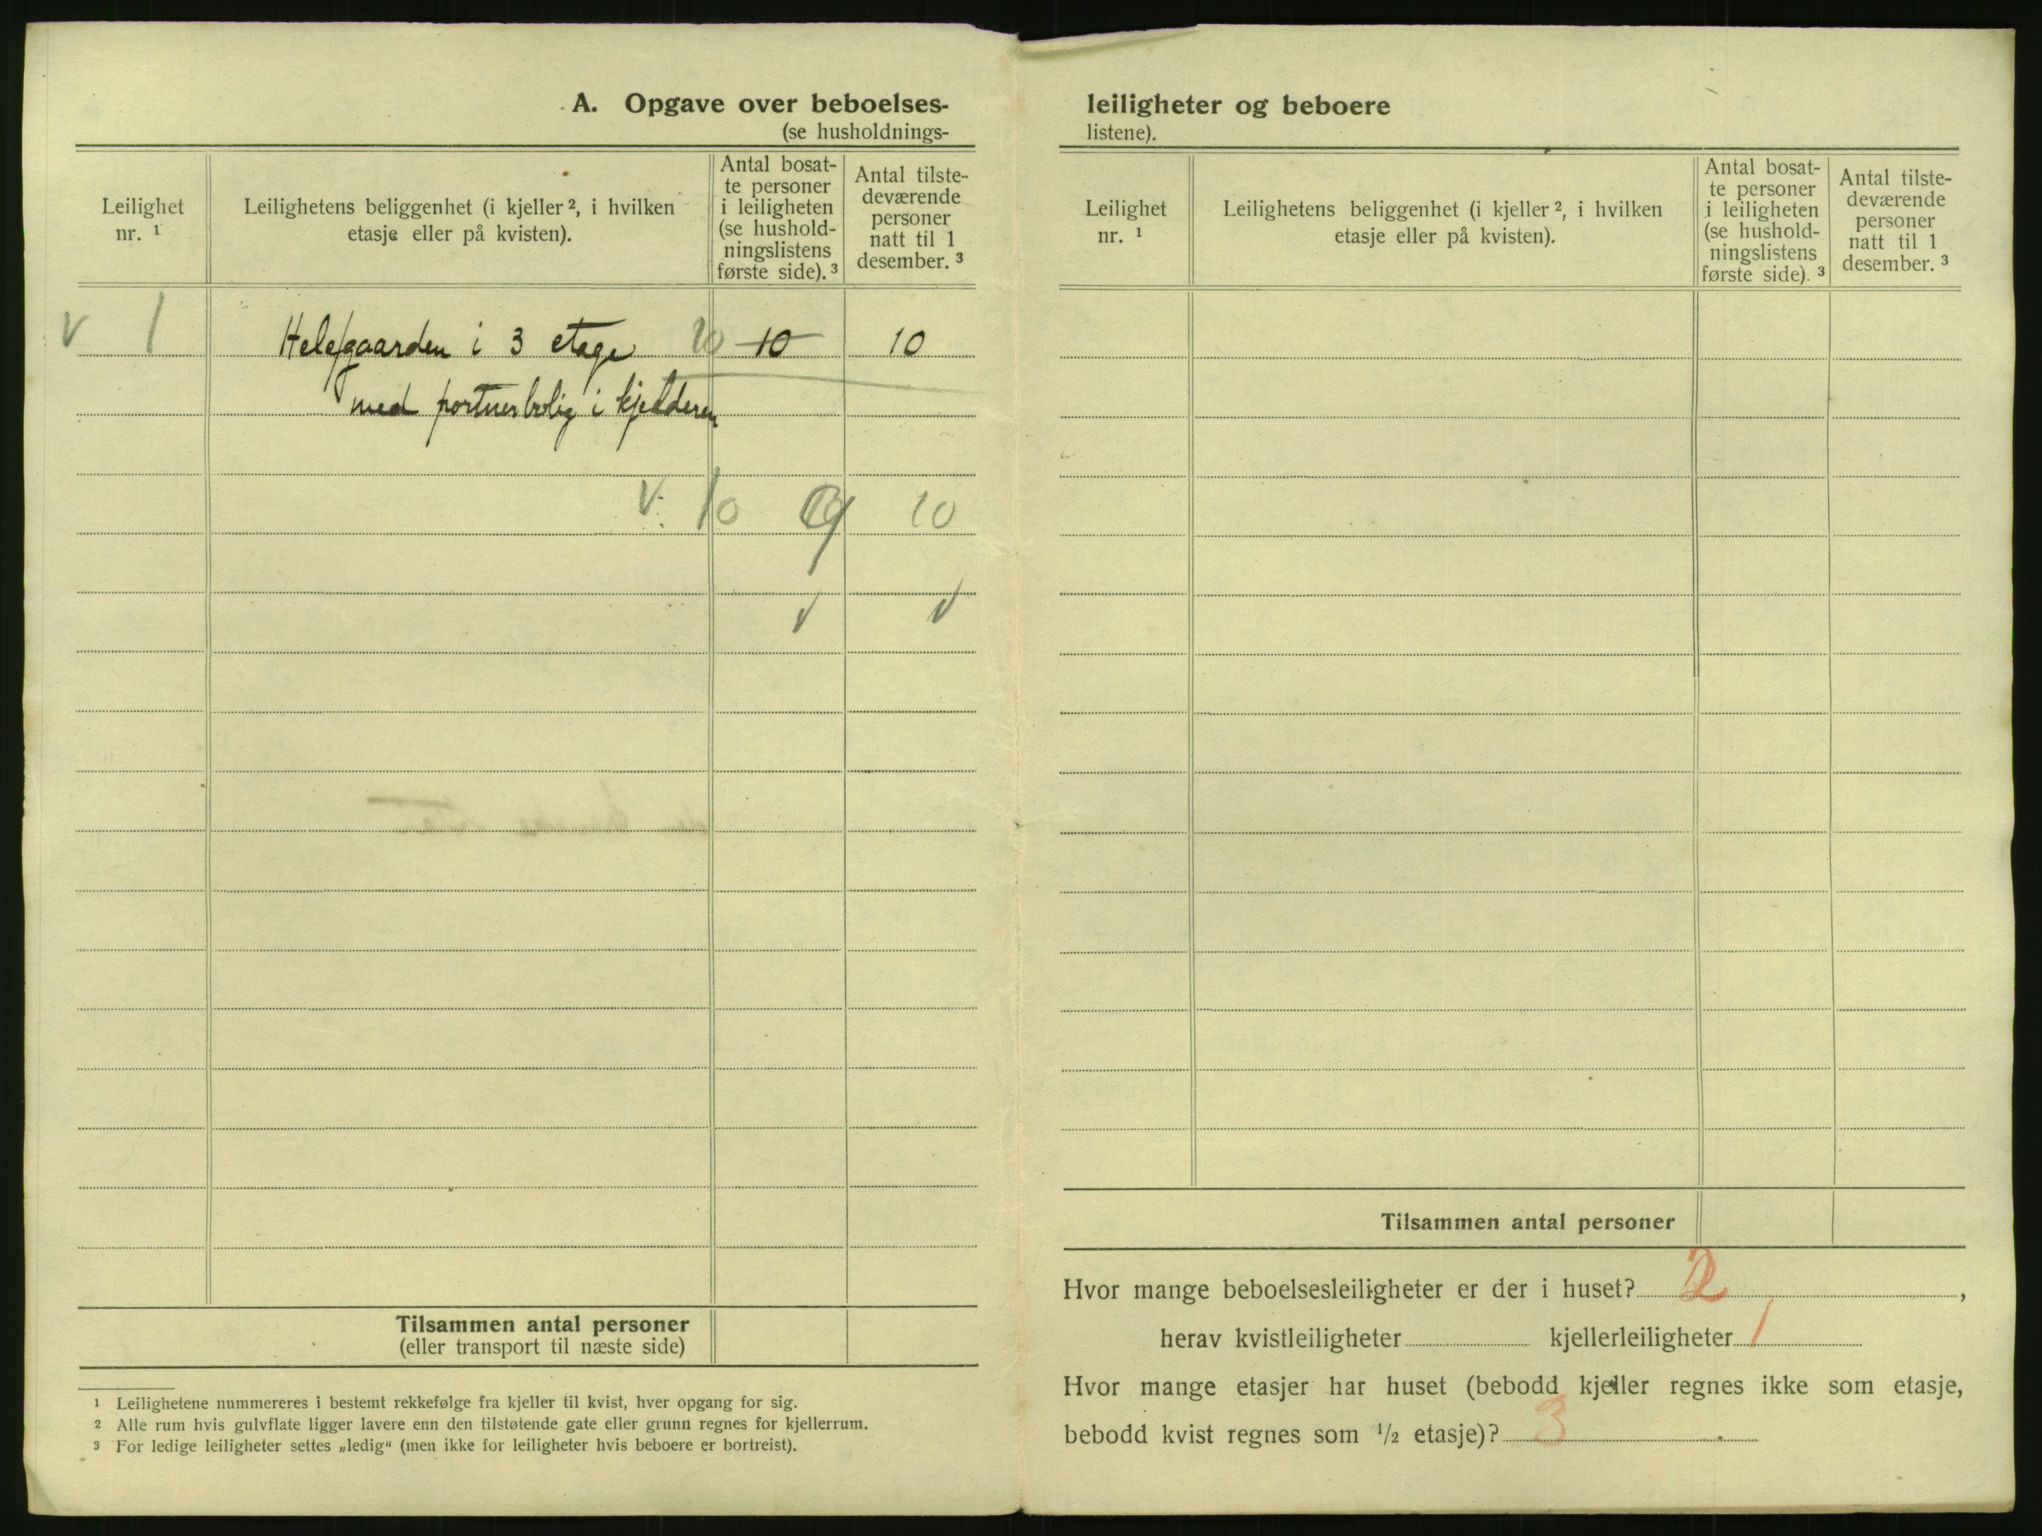 A. Opgave over beboelses-
(se husholdnings-
Leilighet
nr. ¹
Leilighetens beliggenhet (i kjeller ², i hvilken
etasje eller på kvisten).
Antal bosat-
te personer
i leiligheten
(se hushold-
ningslistens
første side). ³
Antal tilste-
deværende
personer
natt til 1
desember. ³
v 1 Hele gaarden i 3 etage 10 10 10
med portnerbolig i kjelderen
v 10 9 10
v v
Tilsammen antal personer
(eller transport til næste side)
¹ Leilighetene nummereres i bestemt rekkefølge fra kjeller til kvist, hver opgang for sig.
² Alle rum hvis gulvflate ligger lavere enn den tilstøtende gate eller grunn regnes for kjellerrum.
³ For ledige leiligheter settes „ledig“ (men ikke for leiligheter hvis beboere er bortreist).
leiligheter og beboere
listene).
Leilighet
nr. ¹
Leilighetens beliggenhet (i kjeller ², i hvilken
etasje eller på kvisten).
Antal bosat-
te personer
i leiligheten
(se hushold-
ningslistens
første side). ³
Antal tilste-
deværende
personer
natt til 1
desember. ³
Tilsammen antal personer
Hvor mange beboelsesleiligheter er der i huset? 2,
herav kvistleiligheter kjellerleiligheter 1
Hvor mange etasjer har huset (bebodd kjeller regnes ikke som etasje,
bebodd kvist regnes som ½ etasje)? 3